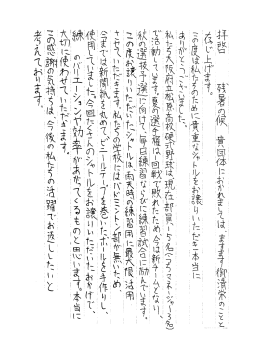 拝啓　残暑の候、貴団体におかれましては、ますます御清栄のことと
存じ上げます。
この度は私たちのために貴重なシャトルをお譲りいただき本当に
ありがとうございました。
私たち大阪府立 高校硬式野球は、現在部員15名(マネージャー3名)
で活動しています。夏の選手権は一回戦で敗れたため、今は新チームとなり、
秋の選抜予選に向けて、毎日練習ならびに練習試合に励んでいます。
この度お譲りいただいたシャトルは雨天時の練習用に最大限活用
させていただきます。私たちの学校にはバドミントン部が無いため
今までは新聞紙を丸めて、ビニールテープを巻いたボールを手作りし、
使用していました。今回たくさんのシャトルをお譲りいただいたおかげで、
練習のバリエーションや効率があがってくるものと思います。本当に
大切に使わせていただきます。
この感謝の気持ちは、今後の私たちの活躍でお返ししたいと
考えております。